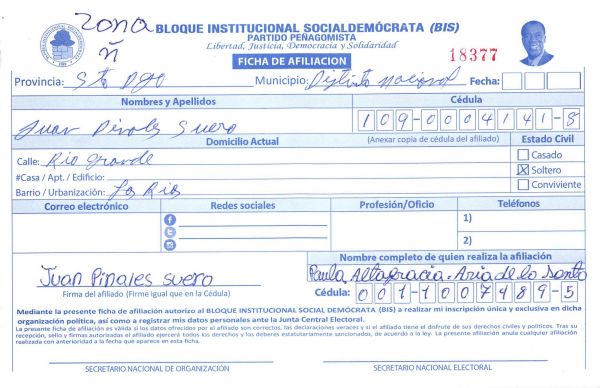 Zona
ñ
BLOQUE INSTITUCIONAL SOCIALDEMÓCRATA (BIS)
PARTIDO PEÑAGOMISTA
Libertad, Justicia, Democracia y Solidaridad
FICHA DE AFILIACION
18377
Provincia: Sto Dgo Municipio: Distrito nacional Fecha:
Nombres y Apellidos Cédula
Juan Pinales Suero 109-0004141-8
Domicilio Actual (Anexar copia de cédula del afiliado) Estado Civil
Calle: Rio Grande Casado
#Casa / Apt. / Edificio: X Soltero
Barrio / Urbanización: Los Rios Conviviente
Correo electrónico Redes sociales Profesión/Oficio Teléfonos
1)
2)
Nombre completo de quien realiza la afiliación
Juan Pinales Suero Paula Altagracia Aria de lo Santo
Firma del afiliado (Firme igual que en la Cédula) Cédula: 001-1007489-5
Mediante la presente ficha de afiliación autorizo al BLOQUE INSTITUCIONAL SOCIAL DEMÓCRATA (BIS) a realizar mi inscripción única y exclusiva en dicha
organización política, así como a registrar mis datos personales ante la Junta Central Electoral.
La presente ficha de afiliación es válida si los datos ofrecidos por el afiliado son correctos, las declaraciones veraces y si el afiliado tiene el disfrute de sus derechos civiles y políticos. Tras su
recepción, sello y firmas autorizadas el afiliado ejercerá todos los derechos y los deberes estatutariamente sancionados, de acuerdo a la ley. La presente afiliación anula cualquier afiliación
realizada con anterioridad a la fecha que aparece en esta ficha.
SECRETARIO NACIONAL DE ORGANIZACIÓN SECRETARIO NACIONAL ELECTORAL